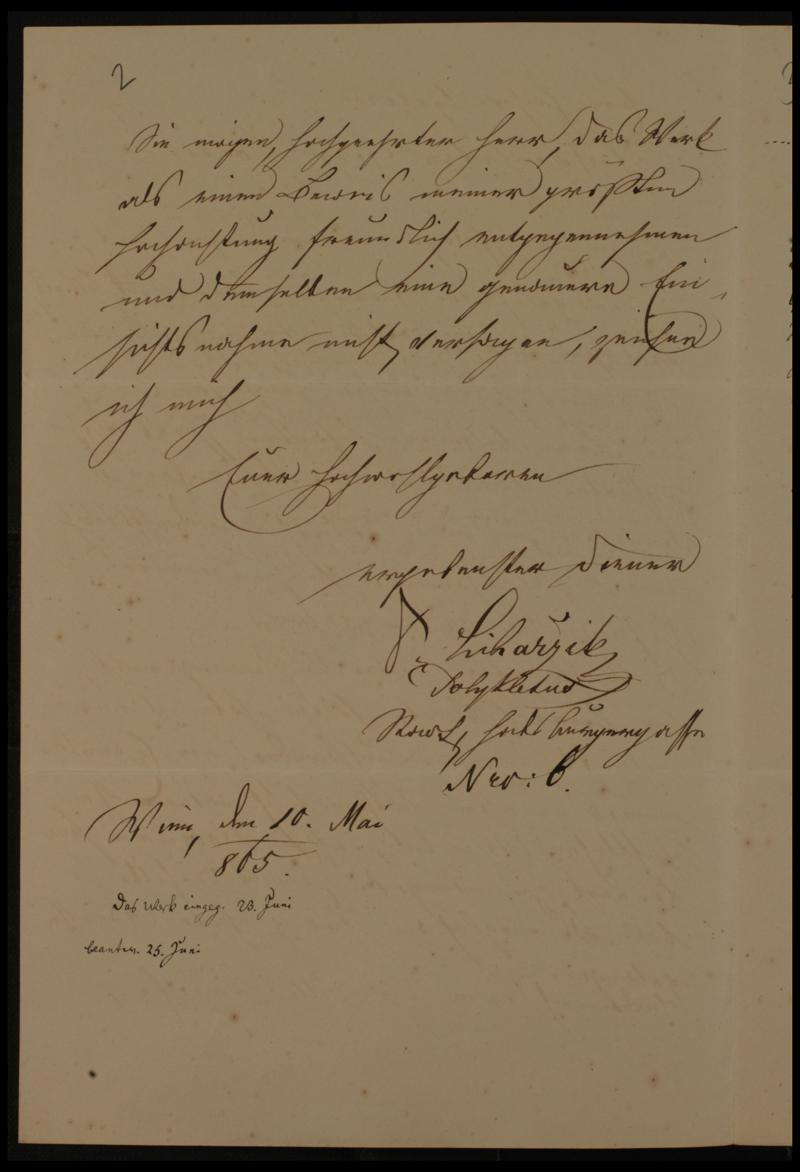 2
Sie mögen, hochgeehrter Herr, das Werk
als einen Beweis meiner größten
Hochachtung freundlich entgegennehmen
und demselben eine genauere Ein-
sichtsnahme nicht versagen, zeichne
ich mich
Euer Hochwohlgeboren
ergebenster Diener
F. Liharzik
Polykletus
Stadt, Habsburgergasse
Nro: 6.
Wien, den 10. Mai
865.
Das Werk eingeg. 23. Juni
beantw. 25. Juni